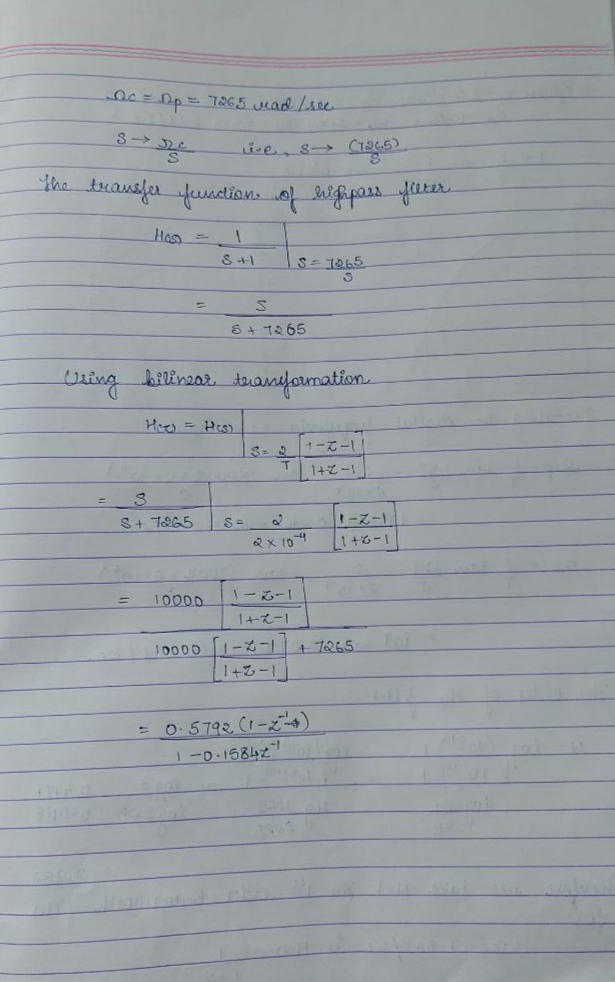 Ωc = Ωp = 7265 rad/sec
S → Ωc/S i.e., S → (7265)/S
The transfer function of highpass filter
H(s) = 1/(S+1) | S = 7265/S
= S/(S + 7265)
Using bilinear transformation
H(z) = H(s) | S = 2/T [1-z-1/1+z-1]
= S/(S + 7265) | S = 2/(2×10⁻⁴) [1-z-1/1+z-1]
= 10000 [1-z-1/1+z-1]
10000 [1-z-1/1+z-1] + 7265
= 0.5792 (1-z⁻¹)/(1-0.1584z⁻¹)